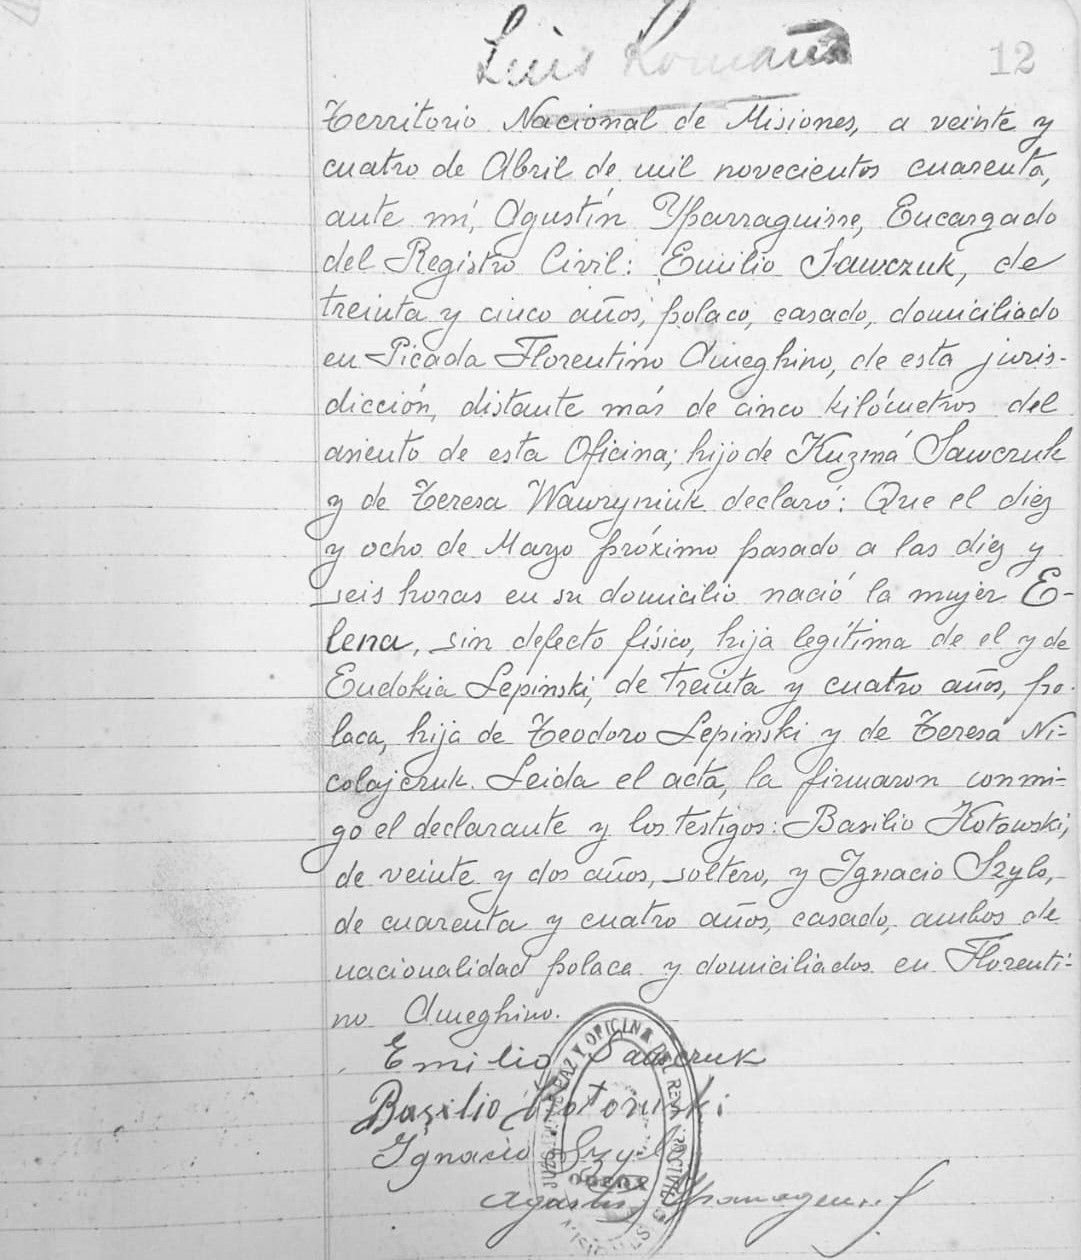 Luis Romaña
12
Territorio Nacional de Misiones, a veinte y
cuatro de Abril de mil novecientos cuarenta,
ante mí, Agustín Yparraguirre, Encargado
del Registro Civil: Emilio Sawczuk, de
treinta y cinco años, polaco, casado, domiciliado
en Picada Florentino Ameghino, de esta juris-
dicción, distante más de cinco kilómetros del
asiento de esta Oficina; hijo de Kuzmá Sawczuk
y de Teresa Wawryniuk declaró: Que el diez
y ocho de Marzo próximo pasado a las diez y
seis horas en su domicilio nació la mujer E-
lena, sin defecto físico, hija legítima de el y de
Eudokia Lepinski, de treinta y cuatro años, po-
laca, hija de Teodoro Lepinski y de Teresa Ni-
colajczuk. Leida el acta, la firmaron conmi-
go el declarante y los testigos: Basilio Kotowski,
de veinte y dos años, soltero, y Ignacio Szylo,
de cuarenta y cuatro años, casado, ambos de
nacionalidad polaca y domiciliados en Florenti-
no Ameghino.
Emilio Sawczuk
Basilio Kotowski
Ignacio Szylo
JUZGADO DE PAZ Y OFICINA DEL REG. CIVIL
MISIONES